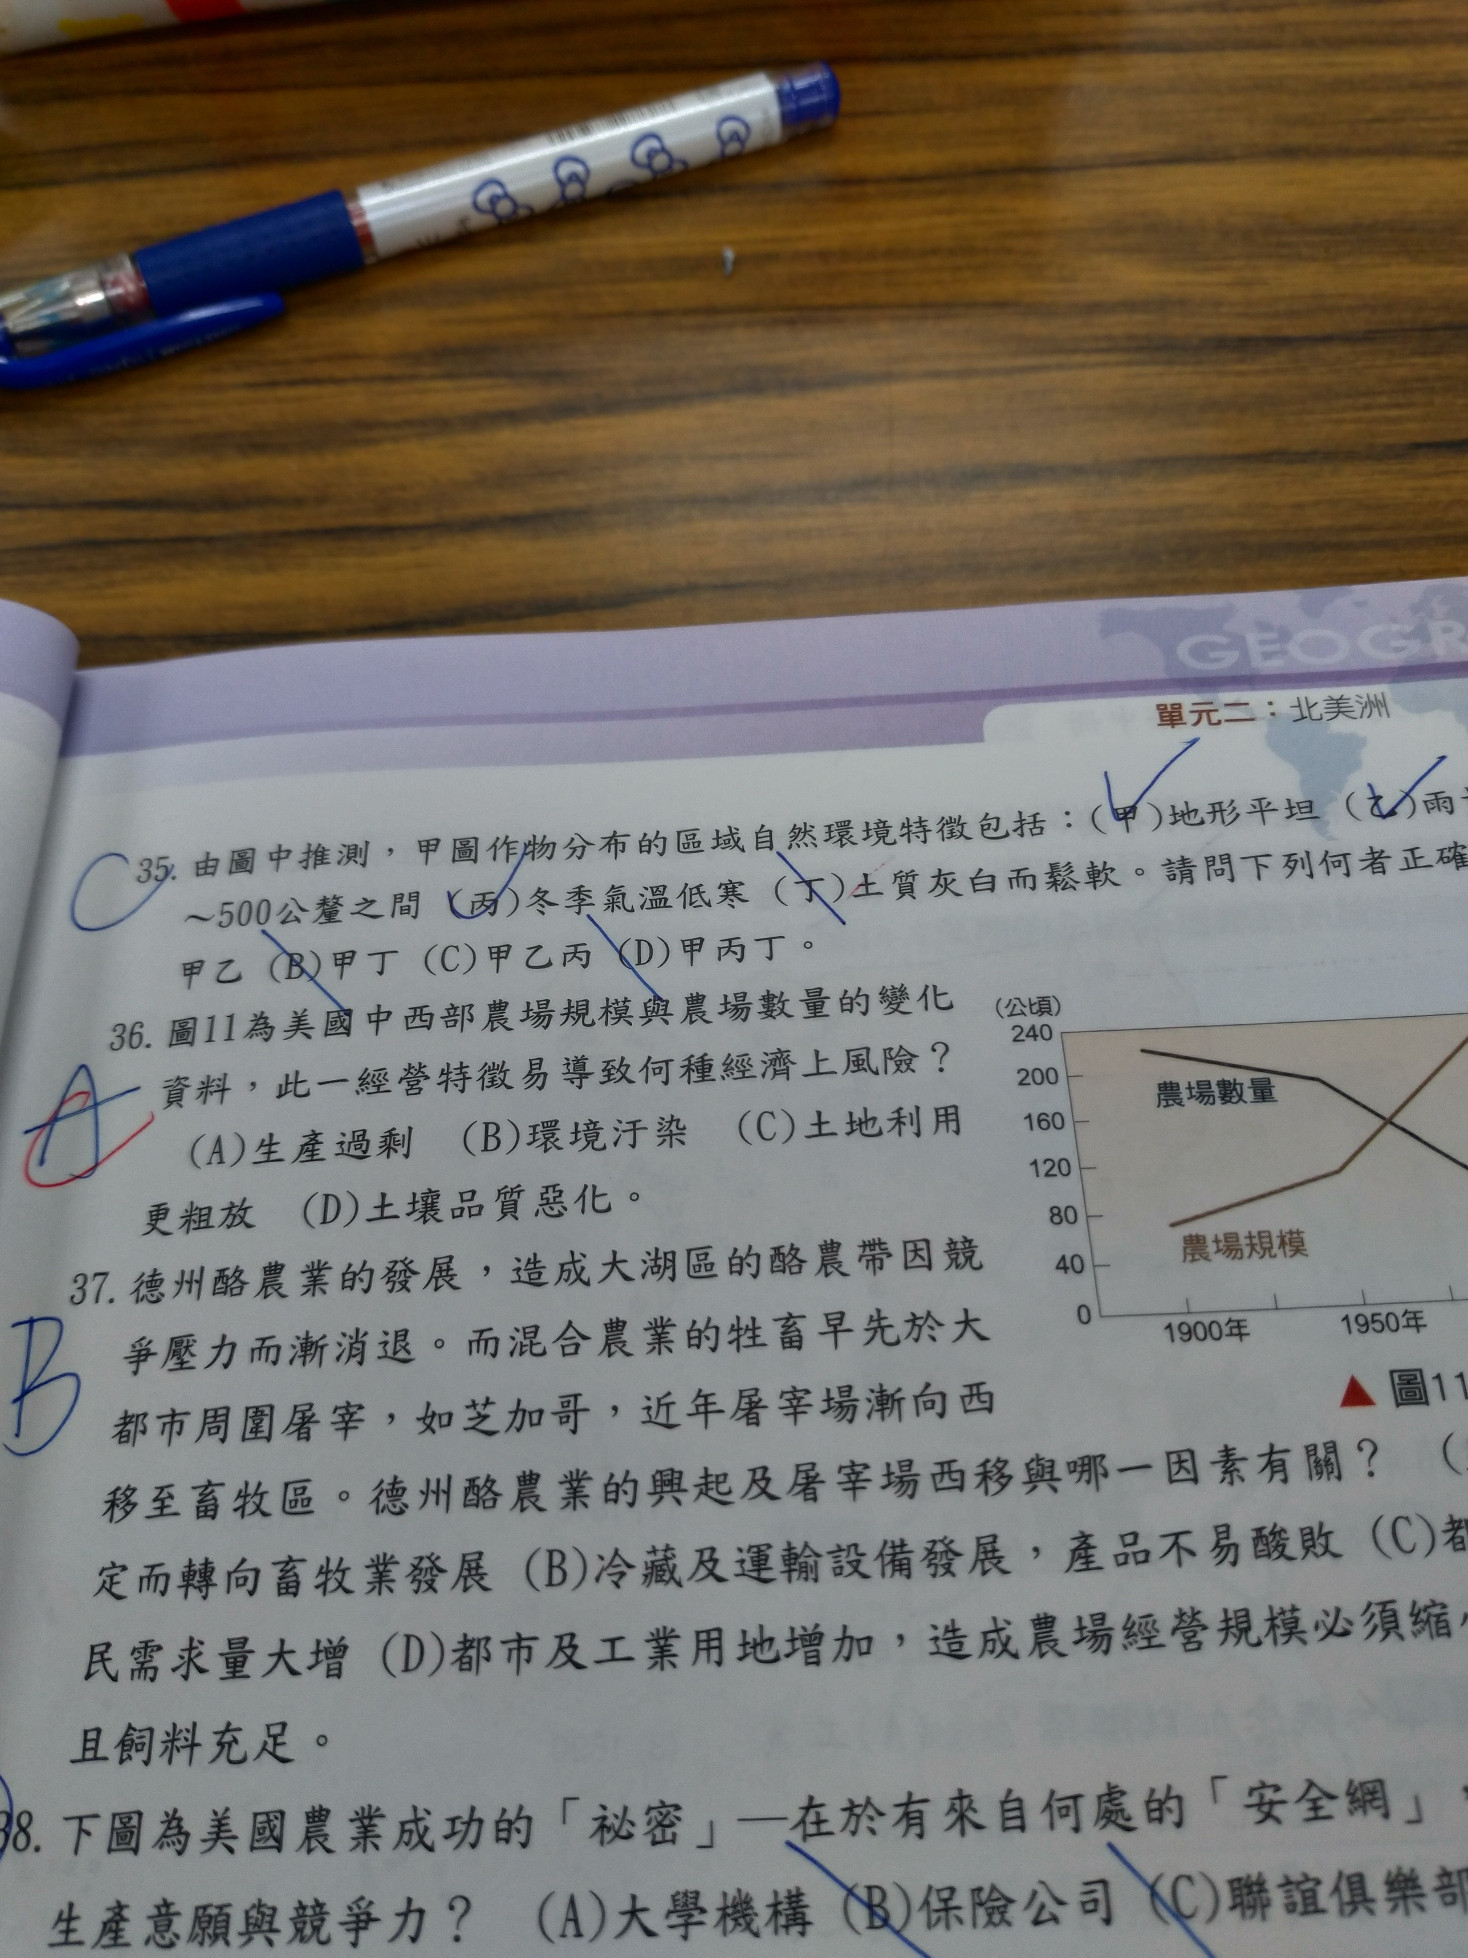 GEOGR
單元二：北美洲
C
35. 由圖中推測，甲圖作物分布的區域自然環境特徵包括：(甲)地形平坦 (乙)雨
～500公釐之間 (丙)冬季氣溫低寒 (丁)土質灰白而鬆軟。請問下列何者正確
甲乙 (B)甲丁 (C)甲乙丙 (D)甲丙丁。
A
36. 圖11為美國中西部農場規模與農場數量的變化
資料，此一經營特徵易導致何種經濟上風險？
(A)生產過剩 (B)環境汙染 (C)土地利用
更粗放 (D)土壤品質惡化。
(公頃)
240
200
160
120
80
40
0
農場數量
農場規模
1900年 1950年
▲ 圖11
B
37. 德州酪農業的發展，造成大湖區的酪農帶因競
爭壓力而漸消退。而混合農業的牲畜早先於大
都市周圍屠宰，如芝加哥，近年屠宰場漸向西
移至畜牧區。德州酪農業的興起及屠宰場西移與哪一因素有關？ (
定而轉向畜牧業發展 (B)冷藏及運輸設備發展，產品不易酸敗 (C)都
民需求量大增 (D)都市及工業用地增加，造成農場經營規模必須縮
且飼料充足。
38. 下圖為美國農業成功的「祕密」—在於有來自何處的「安全網」
生產意願與競爭力？ (A)大學機構 (B)保險公司 (C)聯誼俱樂部